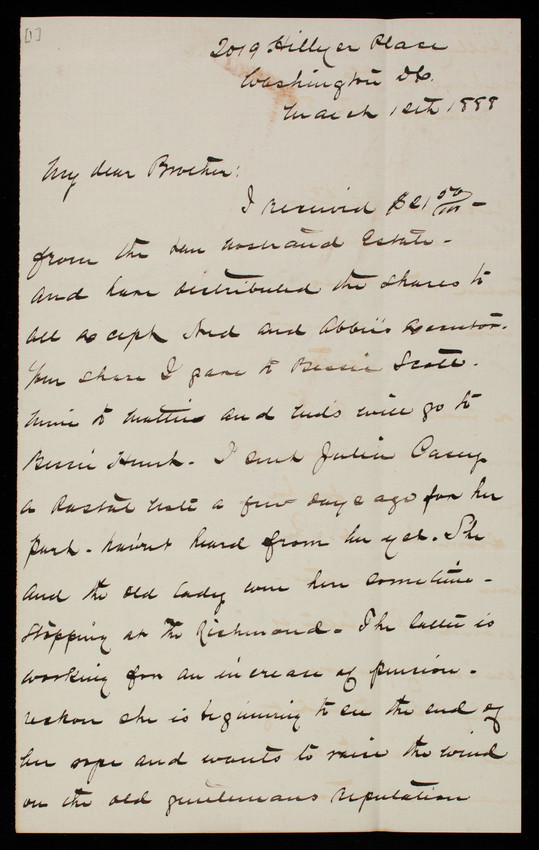 [1]
2019 Hillyer Place
Washington DC.
March 12th 1888
My dear Brother:
I received $21 50/100 –
from the Van Nostrand Estate –
and have distributed the shares to
all except Ned and Abbie's executor.
Your share I gave to Bessie Scott.
mine to Mattie and Ned's will go to
Bessie Hunt. I sent Julia Casey
a Postal note a few days ago for her
part – haven't heard from her yet. She
and the old lady were here sometime –
stopping at the Richmond – The latter is
working for an increase of pension –
reckon she is beginning to see the end of
her rope and wants to raise the wind
on the old gentlemans reputation